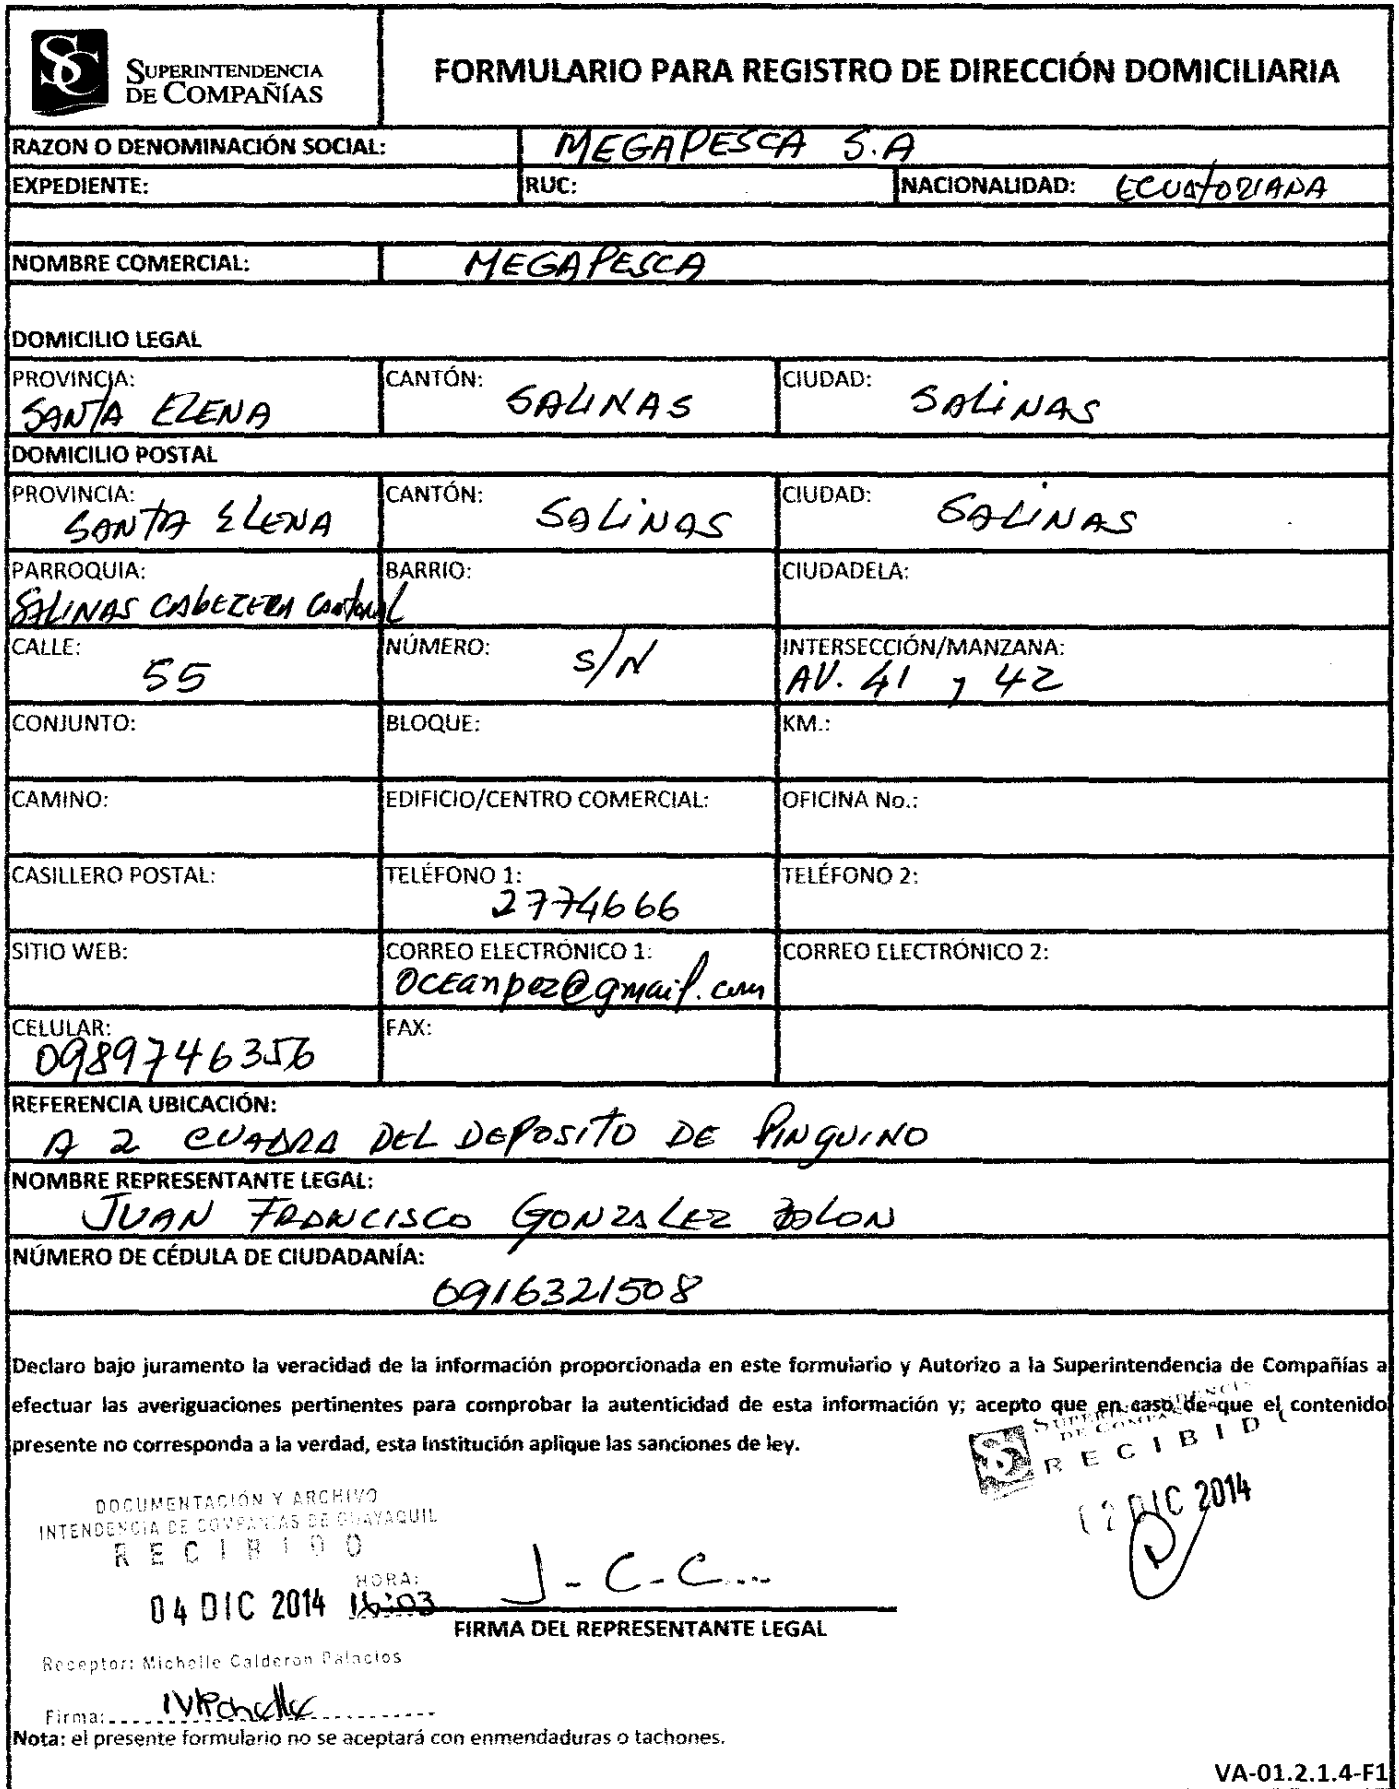 SUPERINTENDENCIA
DE COMPAÑÍAS
FORMULARIO PARA REGISTRO DE DIRECCIÓN DOMICILIARIA
RAZON O DENOMINACIÓN SOCIAL: MEGAPESCA S.A
EXPEDIENTE: RUC: NACIONALIDAD: ECUATORIANA
NOMBRE COMERCIAL: MEGAPESCA
DOMICILIO LEGAL
PROVINCIA: CANTÓN: CIUDAD:
SANTA ELENA SALINAS SALINAS
DOMICILIO POSTAL
PROVINCIA: CANTÓN: CIUDAD:
SANTA ELENA SALINAS SALINAS
PARROQUIA: BARRIO: CIUDADELA:
SALINAS CABEZERA Cantonal
CALLE: NÚMERO: INTERSECCIÓN/MANZANA:
55 S/N AV. 41 y 42
CONJUNTO: BLOQUE: KM.:
CAMINO: EDIFICIO/CENTRO COMERCIAL: OFICINA No.:
CASILLERO POSTAL: TELÉFONO 1: TELÉFONO 2:
2774666
SITIO WEB: CORREO ELECTRÓNICO 1: CORREO ELECTRÓNICO 2:
OCEanpez@gmail.com
CELULAR: FAX:
0989746356
REFERENCIA UBICACIÓN:
A 2 CUADRA DEL DEPOSITO DE PINGUINO
NOMBRE REPRESENTANTE LEGAL:
JUAN FRANCISCO GONZALEZ
NÚMERO DE CÉDULA DE CIUDADANÍA:
0916321508
Declaro bajo juramento la veracidad de la información proporcionada en este formulario y Autorizo a la Superintendencia de Compañías a
efectuar las averiguaciones pertinentes para comprobar la autenticidad de esta información y; acepto que en caso de que el contenido
presente no corresponda a la verdad, esta Institución aplique las sanciones de ley.
SUPERINTENDENCIA
DE COMPAÑÍAS
RECIBID
DIC 2014
DOCUMENTACIÓN Y ARCHIVO
INTENDENCIA DE COMPAÑIAS DE GUAYAQUIL
RECIBIDO
HORA:
04 DIC 2014 16:03
J-C-C...
FIRMA DEL REPRESENTANTE LEGAL
Receptor: Michelle Calderon Palacios
Firma: Michelle
Nota: el presente formulario no se aceptará con enmendaduras o tachones.
VA-01.2.1.4-F1